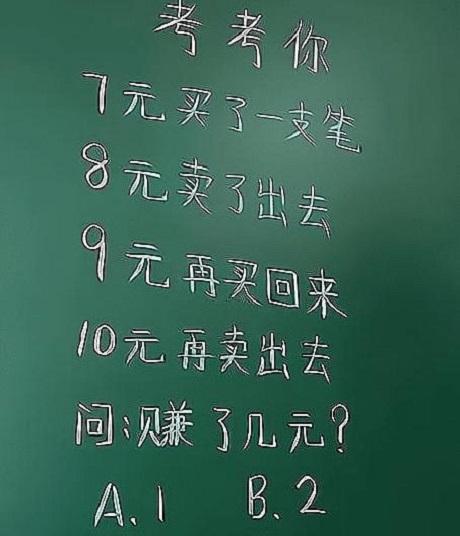 考考你
7元买了一支笔
8元卖了出去
9元再买回来
10元再卖出去
问:赚了几元?
A.1 B.2